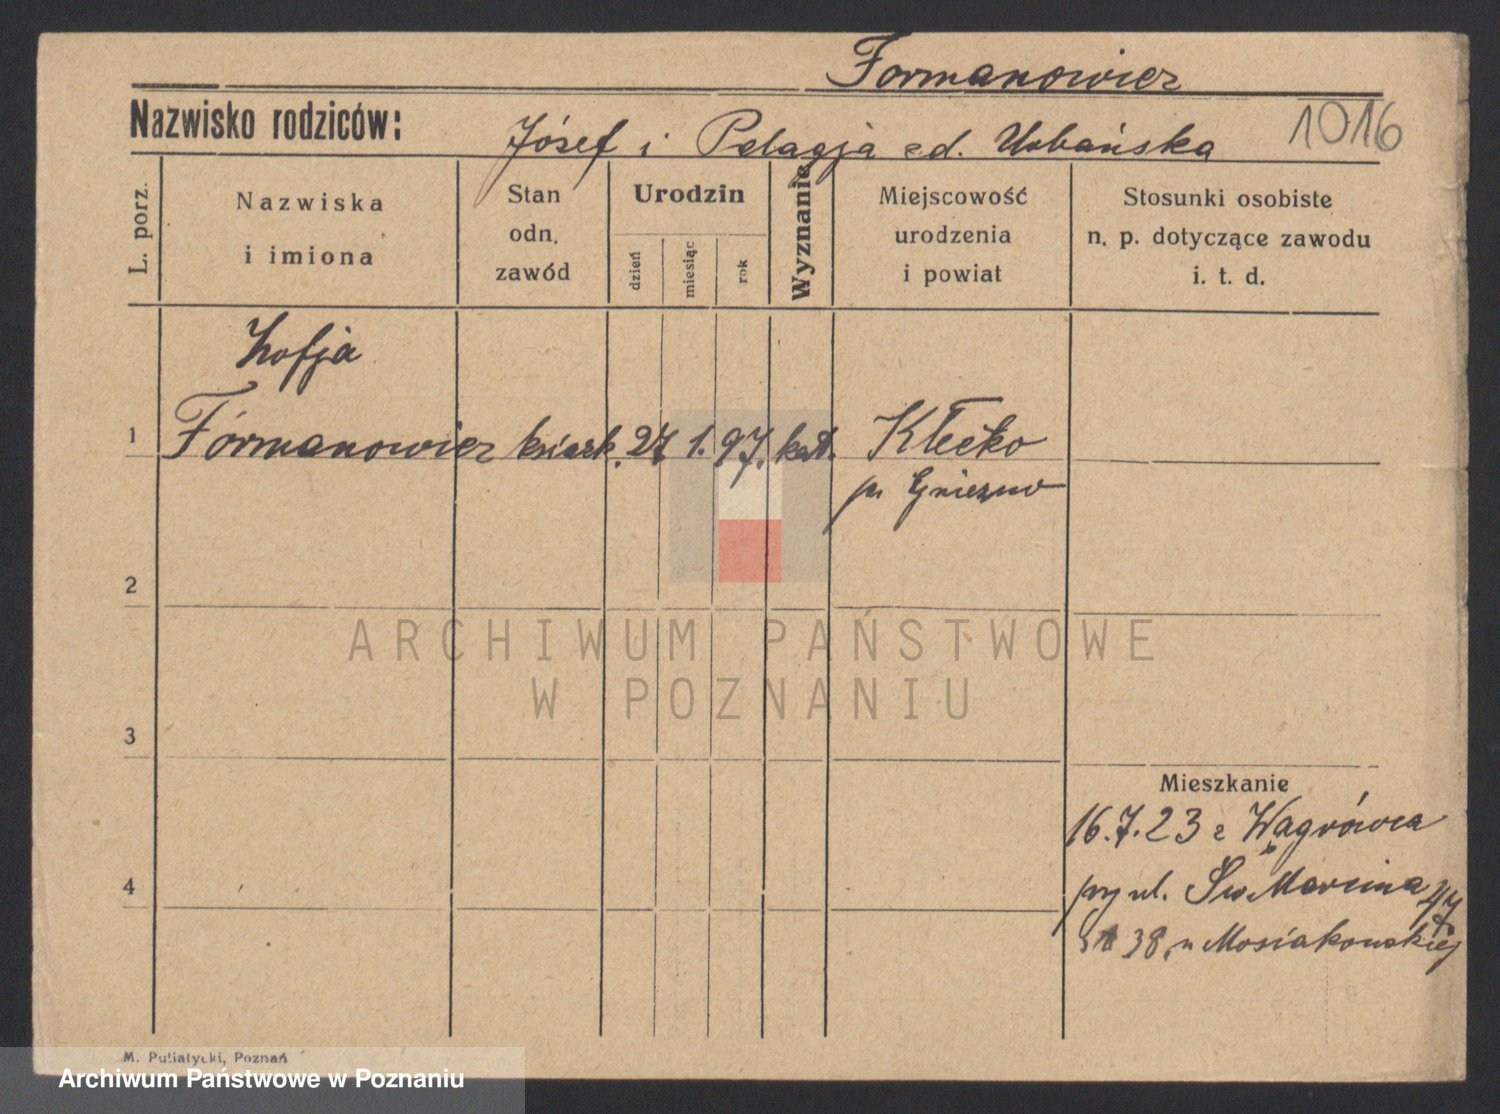 Formanowicz
Nazwisko rodziców: Józef i Pelagja zd. Urbańska 1016
L. porz.
Nazwiska
i imiona
Stan
odn.
zawód
Urodzin
dzień
miesiąc
rok
Wyznanie
Miejscowość
urodzenia
i powiat
Stosunki osobiste
n. p. dotyczące zawodu
i. t. d.
Zofja
1 Formanowicz 27 1. 97. kat. Kłecko
p. Gniezno
2
3
4
Mieszkanie
16.7.23 z Wągrówca
przy ul. Św Marcina 47
38, u Mosiakowskiej
ARCHIWUM PAŃSTWOWE
W POZNANIU
M. Putiatycki, Poznań
Archiwum Państwowe w Poznaniu